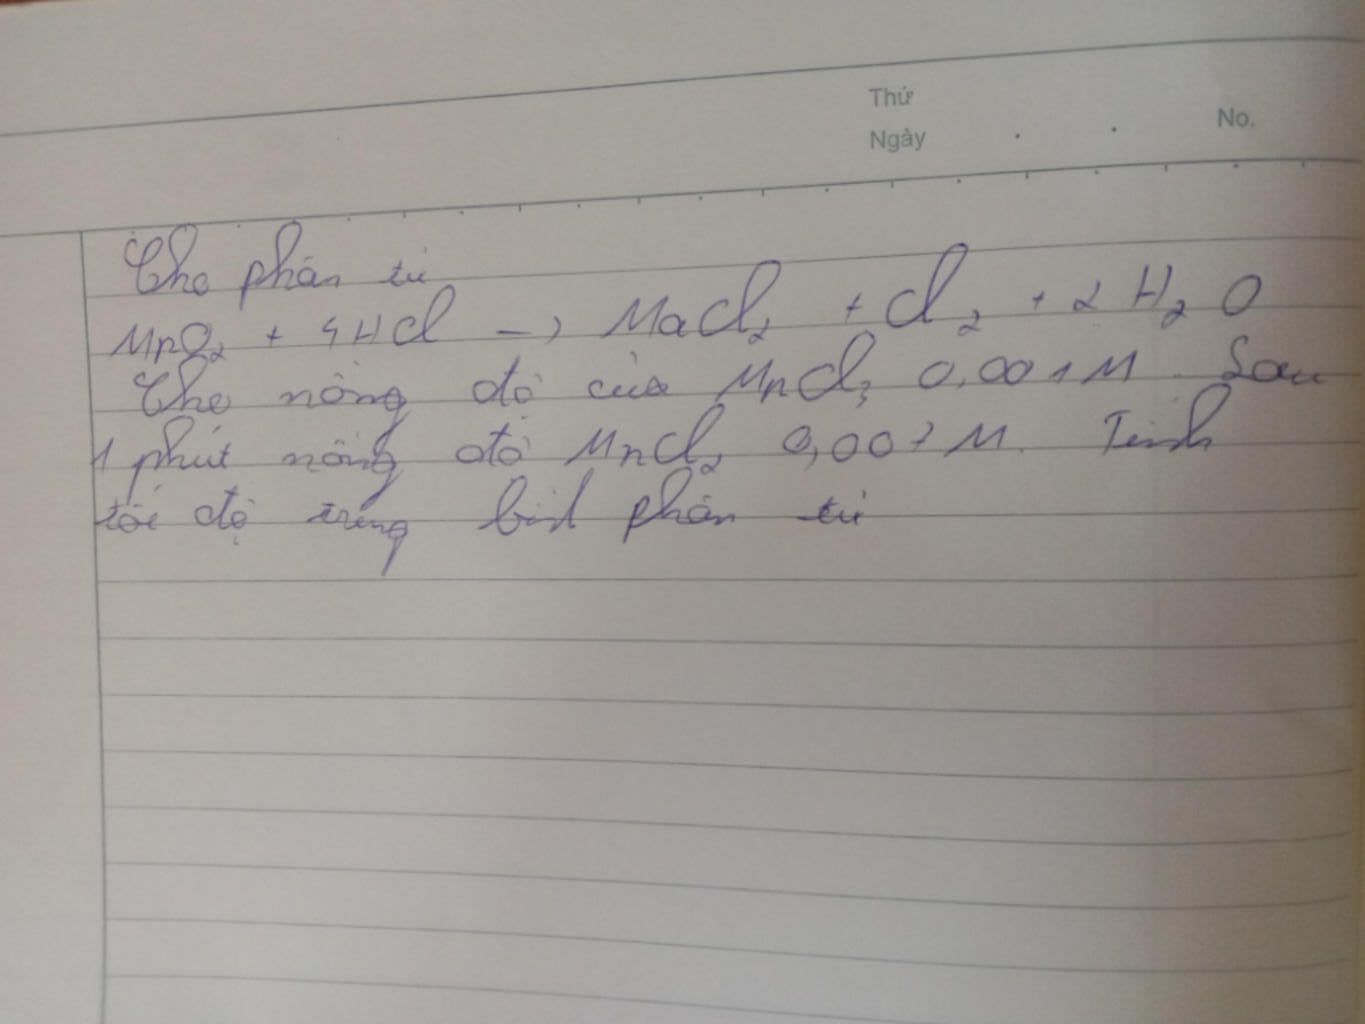 Thứ
Ngày No.
Cho phân tử
MnO2 + 4HCl → MaCl2 + Cl2 + 2H2O
Cho nồng độ của MnCl2 0,001M. Sau
1 phút nồng độ MnCl2 M. Tính
tốc độ trung bình phân tử